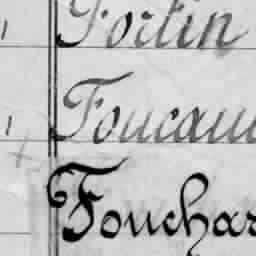 Fortin
Foucau
Fouchar